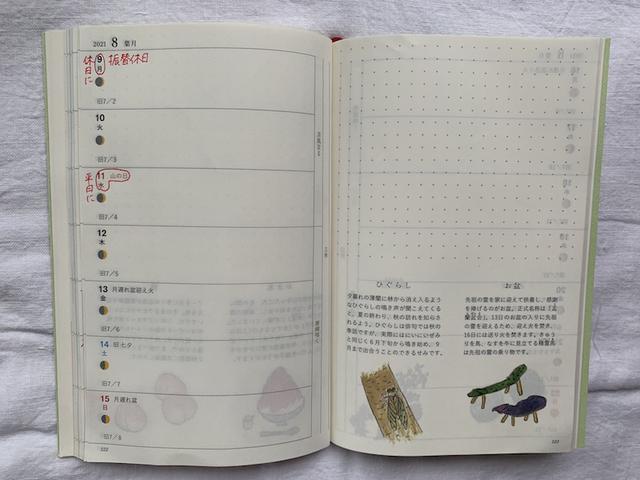 2021 8 葉月
休日に
9 振替休日
月
旧7/2
10
火
旧7/3
平日に
11 山の日
水
旧7/4
12
木
旧7/5
13 月遅れ盆迎え火
金
旧7/6
14 旧七夕
土
旧7/7
15 月遅れ盆
日
旧7/8
122
ひぐらし
夕暮れの薄闇に林から消え入るよう
なひぐらしの鳴き声が聞こえてくる
と、夏の終わり、秋の訪れを知らさ
れるよう。ひぐらしは俳句では秋の
季語ですが、実際はにいにいぜみ
と同じく6月下旬から鳴き始め、9
月まで出合うことのできるせみです。
お盆
先祖の霊を家に迎えて供養し、感謝
を捧げるのがお盆。正式名称は「盂
蘭盆会」。13日のお盆の入りに先祖
の霊を迎えるため、迎え火を焚き、
16日には送り火を焚きます。きゅう
りを馬、なすを牛に見立てる精霊馬
は先祖の霊の乗り物です。
123